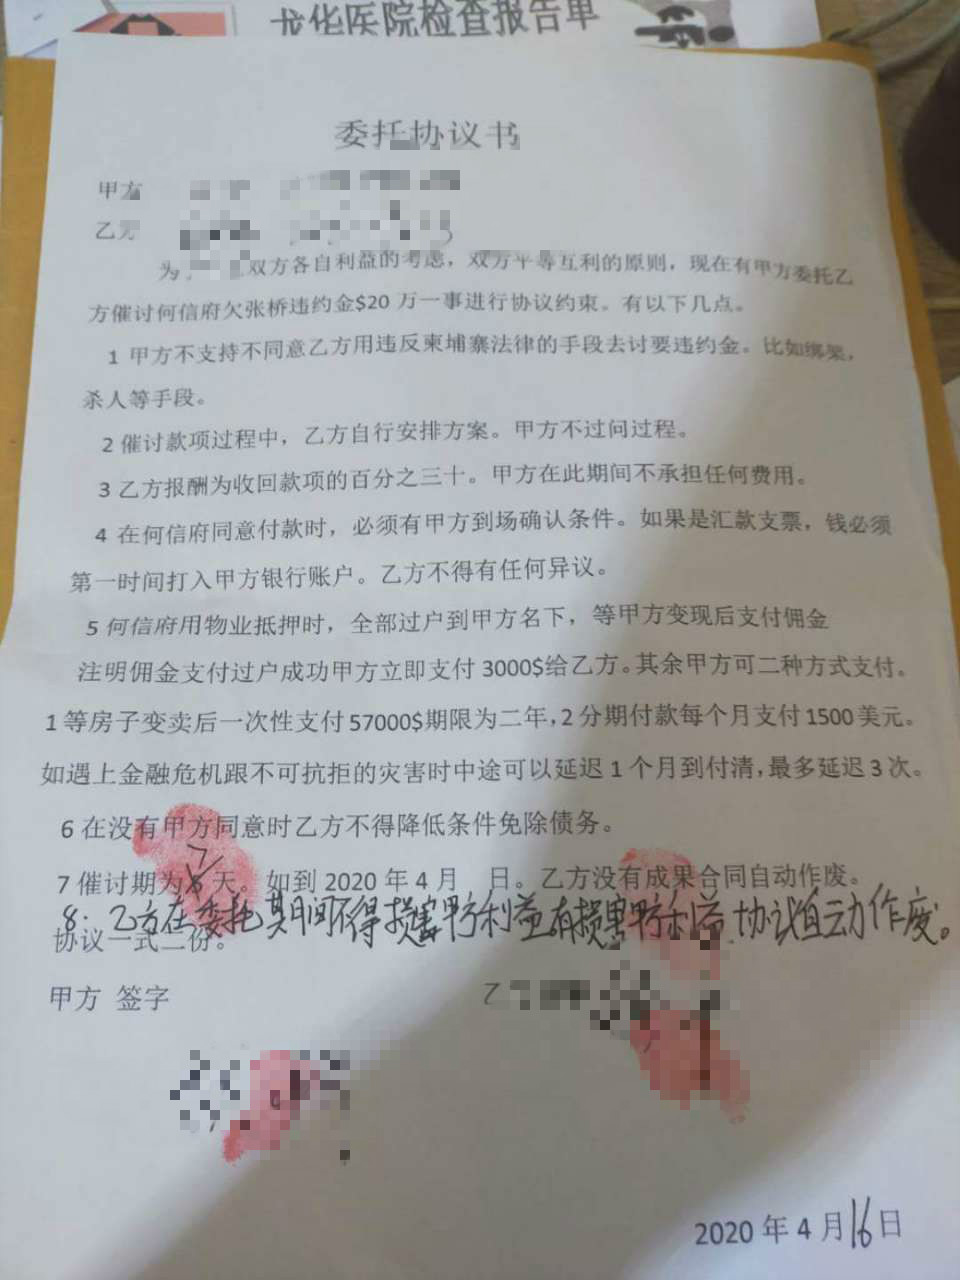 龙华医院检查报告单
委托协议书
甲方
乙方
为双方各自利益的考虑，双方平等互利的原则，现在有甲方委托乙
方催讨何信府欠张桥违约金$20 万一事进行协议约束。有以下几点。
1 甲方不支持不同意乙方用违反柬埔寨法律的手段去讨要违约金。比如绑架，
杀人等手段。
2 催讨款项过程中，乙方自行安排方案。甲方不过问过程。
3 乙方报酬为收回款项的百分之三十。甲方在此期间不承担任何费用。
4 在何信府同意付款时，必须有甲方到场确认条件。如果是汇款支票，钱必须
第一时间打入甲方银行账户。乙方不得有任何异议。
5 何信府用物业抵押时，全部过户到甲方名下，等甲方变现后支付佣金
注明佣金支付过户成功甲方立即支付 3000$给乙方。其余甲方可二种方式支付。
1 等房子变卖后一次性支付 57000$期限为二年，2 分期付款每个月支付 1500 美元。
如遇上金融危机跟不可抗拒的灾害时中途可以延迟 1 个月到付清，最多延迟 3 次。
6 在没有甲方同意时乙方不得降低条件免除债务。
7 催讨期为7天。如到 2020 年 4 月 日。乙方没有成果合同自动作废。
8：乙方在委托其间不得损害甲方利益有损害甲方利益.协议自动作废。
协议一式二份。
甲方 签字 乙
2020 年 4 月16日